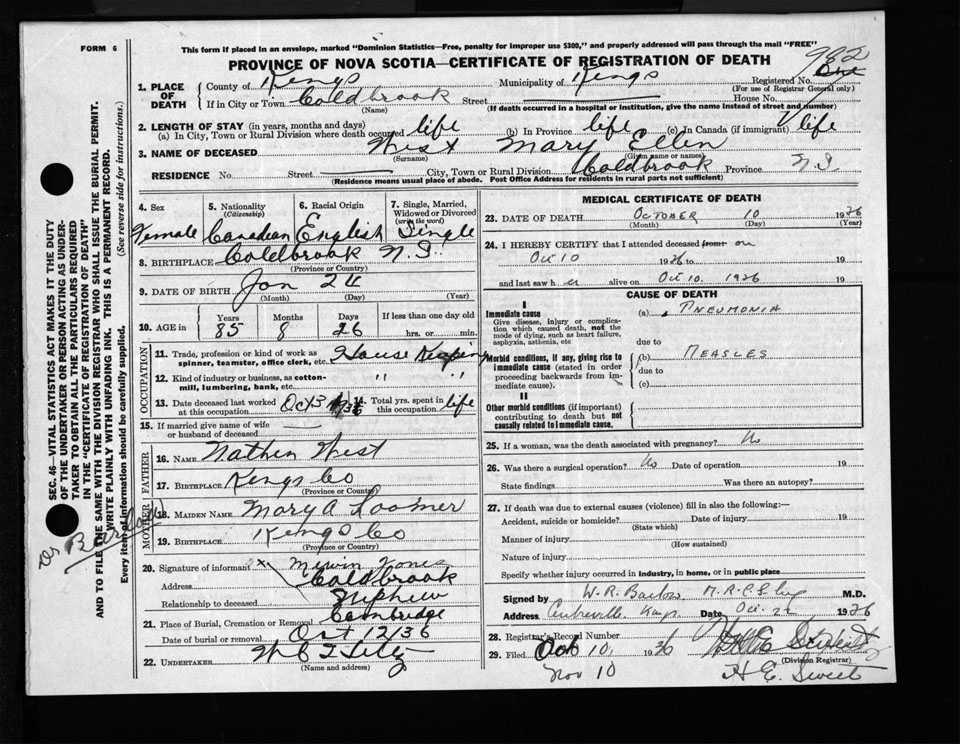 FORM 6
This form if placed in an envelope, marked "Dominion Statistics—Free, penalty for improper use $300," and properly addressed will pass through the mail "FREE"
PROVINCE OF NOVA SCOTIA—CERTIFICATE OF REGISTRATION OF DEATH
982
1. PLACE OF DEATH
County of Kings Municipality of Kings Registered No.
(For use of Registrar General only)
If in City or Town Coldbrook Street House No.
(Name) (If death occurred in a hospital or institution, give the name instead of street and number)
2. LENGTH OF STAY (in years, months and days)
(a) In City, Town or Rural Division where death occurred life (b) In Province life (c) In Canada (if immigrant) life
3. NAME OF DECEASED West Mary Ellen
(Surname) (Given name or names)
RESIDENCE No. Street City, Town or Rural Division Coldbrook Province N.S.
(Residence means usual place of abode. Post Office Address for residents in rural parts not sufficient)
4. Sex 5. Nationality (Citizenship) 6. Racial Origin 7. Single, Married, Widowed or Divorced (write the word)
Female Canadian English Single
8. BIRTHPLACE Coldbrook N.S.
(Province or Country)
9. DATE OF BIRTH Jan 24
(Month) (Day) (Year)
10. AGE in Years Months Days If less than one day old
85 8 26 hrs. or min.
OCCUPATION
11. Trade, profession or kind of work as spinner, teamster, office clerk, etc. House Keeping
12. Kind of industry or business, as cotton-mill, lumbering, bank, etc. " "
13. Date deceased last worked at this occupation Oct 3 1936 14. Total yrs. spent in this occupation life
15. If married give name of wife or husband of deceased
FATHER
16. NAME Nathen West
17. BIRTHPLACE Kings Co
(Province or Country)
MOTHER
18. MAIDEN NAME Mary A Loomer
19. BIRTHPLACE Kings Co
(Province or Country)
20. Signature of informant x Mervin Jones
Address Coldbrook
Relationship to deceased Nephew
21. Place of Burial, Cremation or Removal Cambridge
Date of burial or removal Oct 12/36
22. UNDERTAKER
(Name and address)
MEDICAL CERTIFICATE OF DEATH
23. DATE OF DEATH October 10 1936
(Month) (Day) (Year)
24. I HEREBY CERTIFY that I attended deceased from on
Oct 10 1936 to 19
and last saw her alive on Oct 10. 1936 19
CAUSE OF DEATH
I
Immediate cause
Give disease, injury or complication which caused death, not the mode of dying, such as heart failure, asphyxia, asthenia, etc
(a) Pneumonia
due to
Morbid conditions, if any, giving rise to immediate cause (stated in order proceeding backwards from immediate cause).
(b) Measles
due to
(c)
II
Other morbid conditions (if important) contributing to death but not causally related to immediate cause.
25. If a woman, was the death associated with pregnancy? No
26. Was there a surgical operation? No Date of operation 19
State findings Was there an autopsy?
27. If death was due to external causes (violence) fill in also the following:—
Accident, suicide or homicide? Date of injury 19
(State which)
Manner of injury
(How sustained)
Nature of injury
Specify whether injury occurred in industry, in home, or in public place
Signed by W. R. Barlow M.R.C.S. M.D.
Address Centreville Kings Date Oct. 1936
28. Registrar's Record Number
29. Filed Oct 10, 1936
(Division Registrar)
Nov 10 H E. Sweet
SEC. 46—VITAL STATISTICS ACT MAKES IT THE DUTY
OF THE UNDERTAKER OR PERSON ACTING AS UNDER-
TAKER TO OBTAIN ALL THE PARTICULARS REQUIRED
IN THE "CERTIFICATE OF REGISTRATION OF DEATH"
AND TO FILE THE SAME WITH THE DIVISION REGISTRAR WHO SHALL ISSUE THE BURIAL PERMIT.
WRITE PLAINLY WITH UNFADING INK. THIS IS A PERMANENT RECORD.
Every item of information should be carefully supplied. (See reverse side for instructions.)